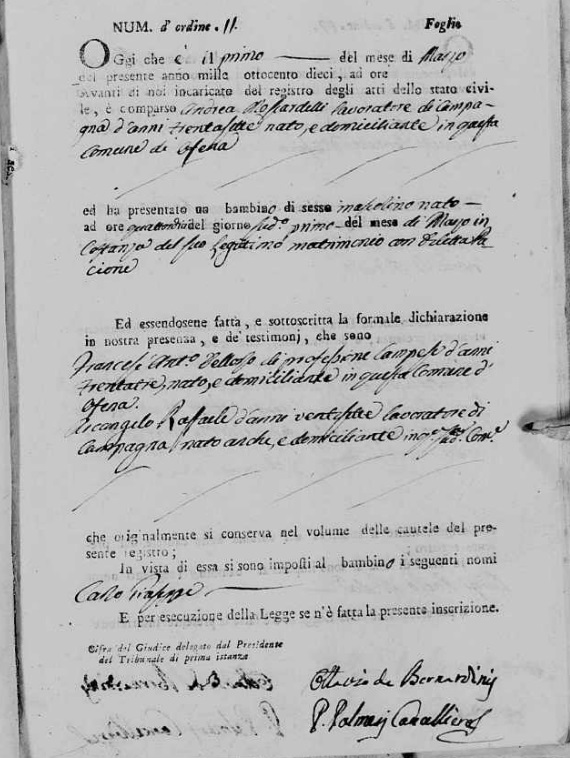 NUM. d'ordine. 11. Foglio
OGgi che è il primo del mese di Marzo
del presente anno mille ottocento dieci, ad ore
avanti di noi incaricato del registro degli atti dello stato civi-
le, è comparso Andrea lavoratore di Campa-
gna d'anni trentasette nato, e domiciliante in questa
Comune di Ofena
ed ha presentato un bambino di sesso mascolino nato
ad ore del giorno sud.o primo del mese di Marzo in
del suo legittimo matrimonio con Diletta Pa-
cione
Ed essendosene fatta, e sottoscritta la formale dichiarazione
in nostra presenza, e de' testimonj, che sono
Ant.o di professione d'anni
trentatre, nato, e domiciliante in questa Comune d'
Ofena.
Arcangelo Raffaele d'anni ventisette lavoratore di
Campagna nato anche, e domiciliante in q.sta sud.a Com.e
che originalmente si conserva nel volume delle cautele del pre-
sente registro;
In vista di essa si sono imposti al bambino i seguenti nomi
Carlo
E per esecuzione della Legge se n'è fatta la presente inscrizione.
Cifra del Giudice delegato dal Presidente
del Tribunale di prima istanza
Ottavio de Bernardinis
P. Cancelliere